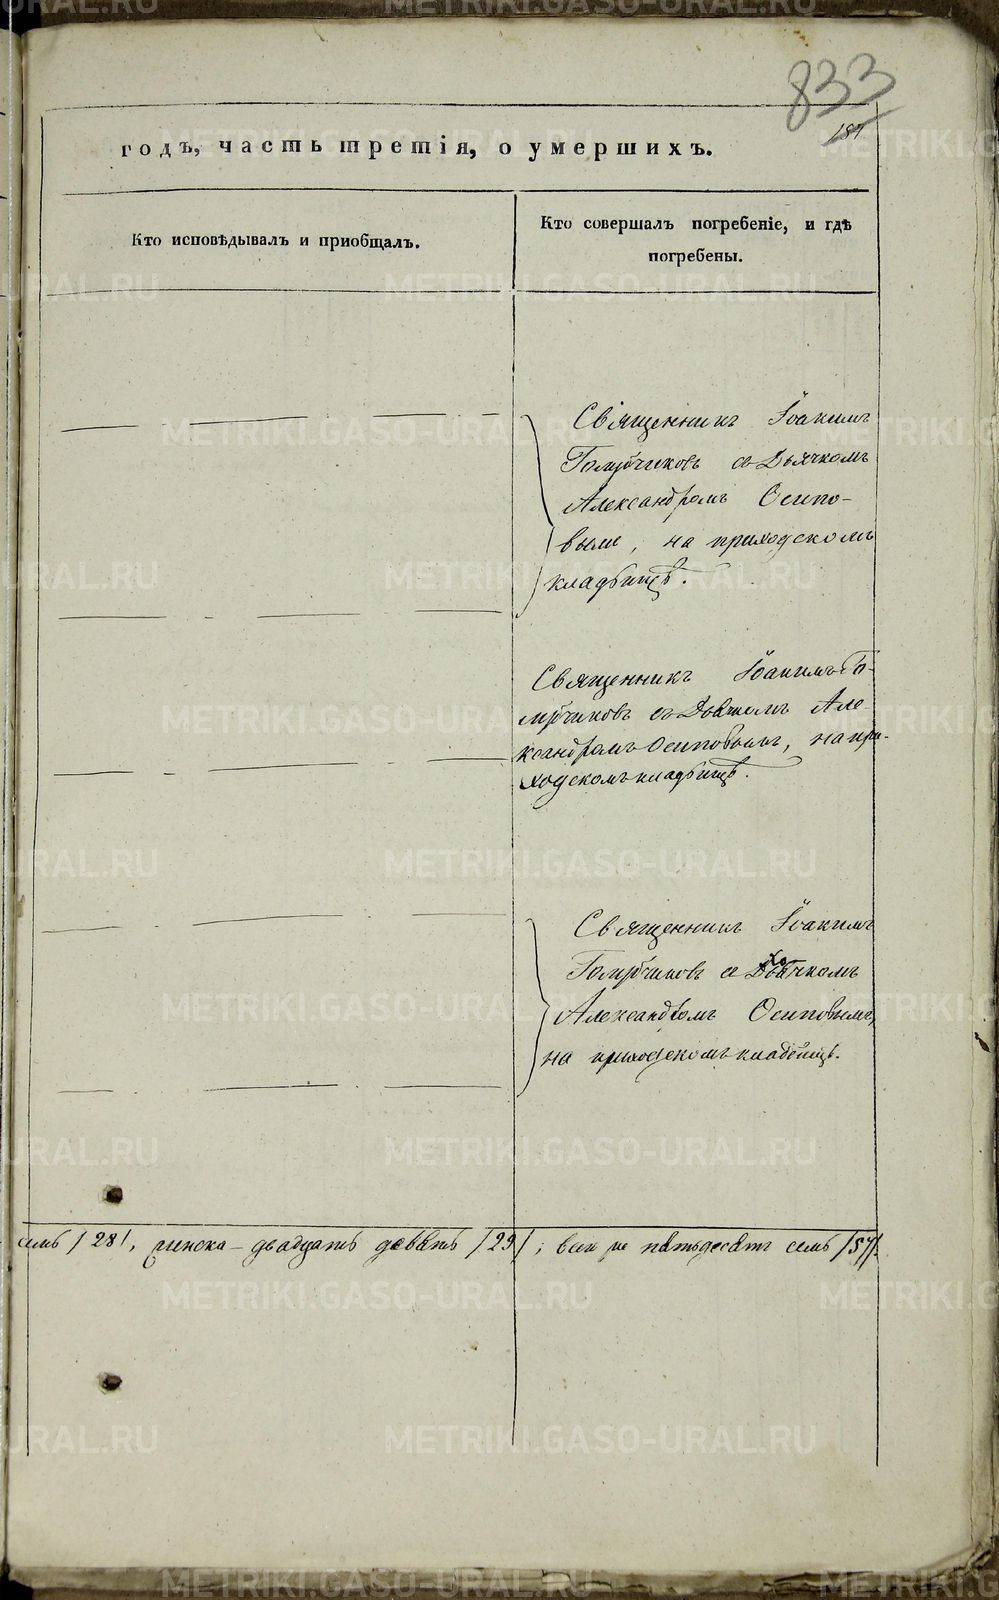 833
187
годъ, часть третія, о умершихъ.
Кто исповѣдывалъ и пріобщалъ.
Кто совершалъ погребеніе, и гдѣ
погребены.
Священникъ Іоакимъ
съ Дьячкомъ
Александромъ Осипо-
вымъ, на приходскомъ
кладбищѣ.
Священникъ Іоакимъ
съ Дьячкомъ Але-
ксандромъ Осиповымъ, на при-
ходскомъ кладбищѣ.
Священникъ Іоакимъ
съ Дьячкомъ
Александромъ Осиповымъ,
на приходскомъ кладбищѣ.
емь /28/, женска – двадцать девять /29/; всего пятьдесятъ семь /57/.
METRIKI.GASO-URAL.RU